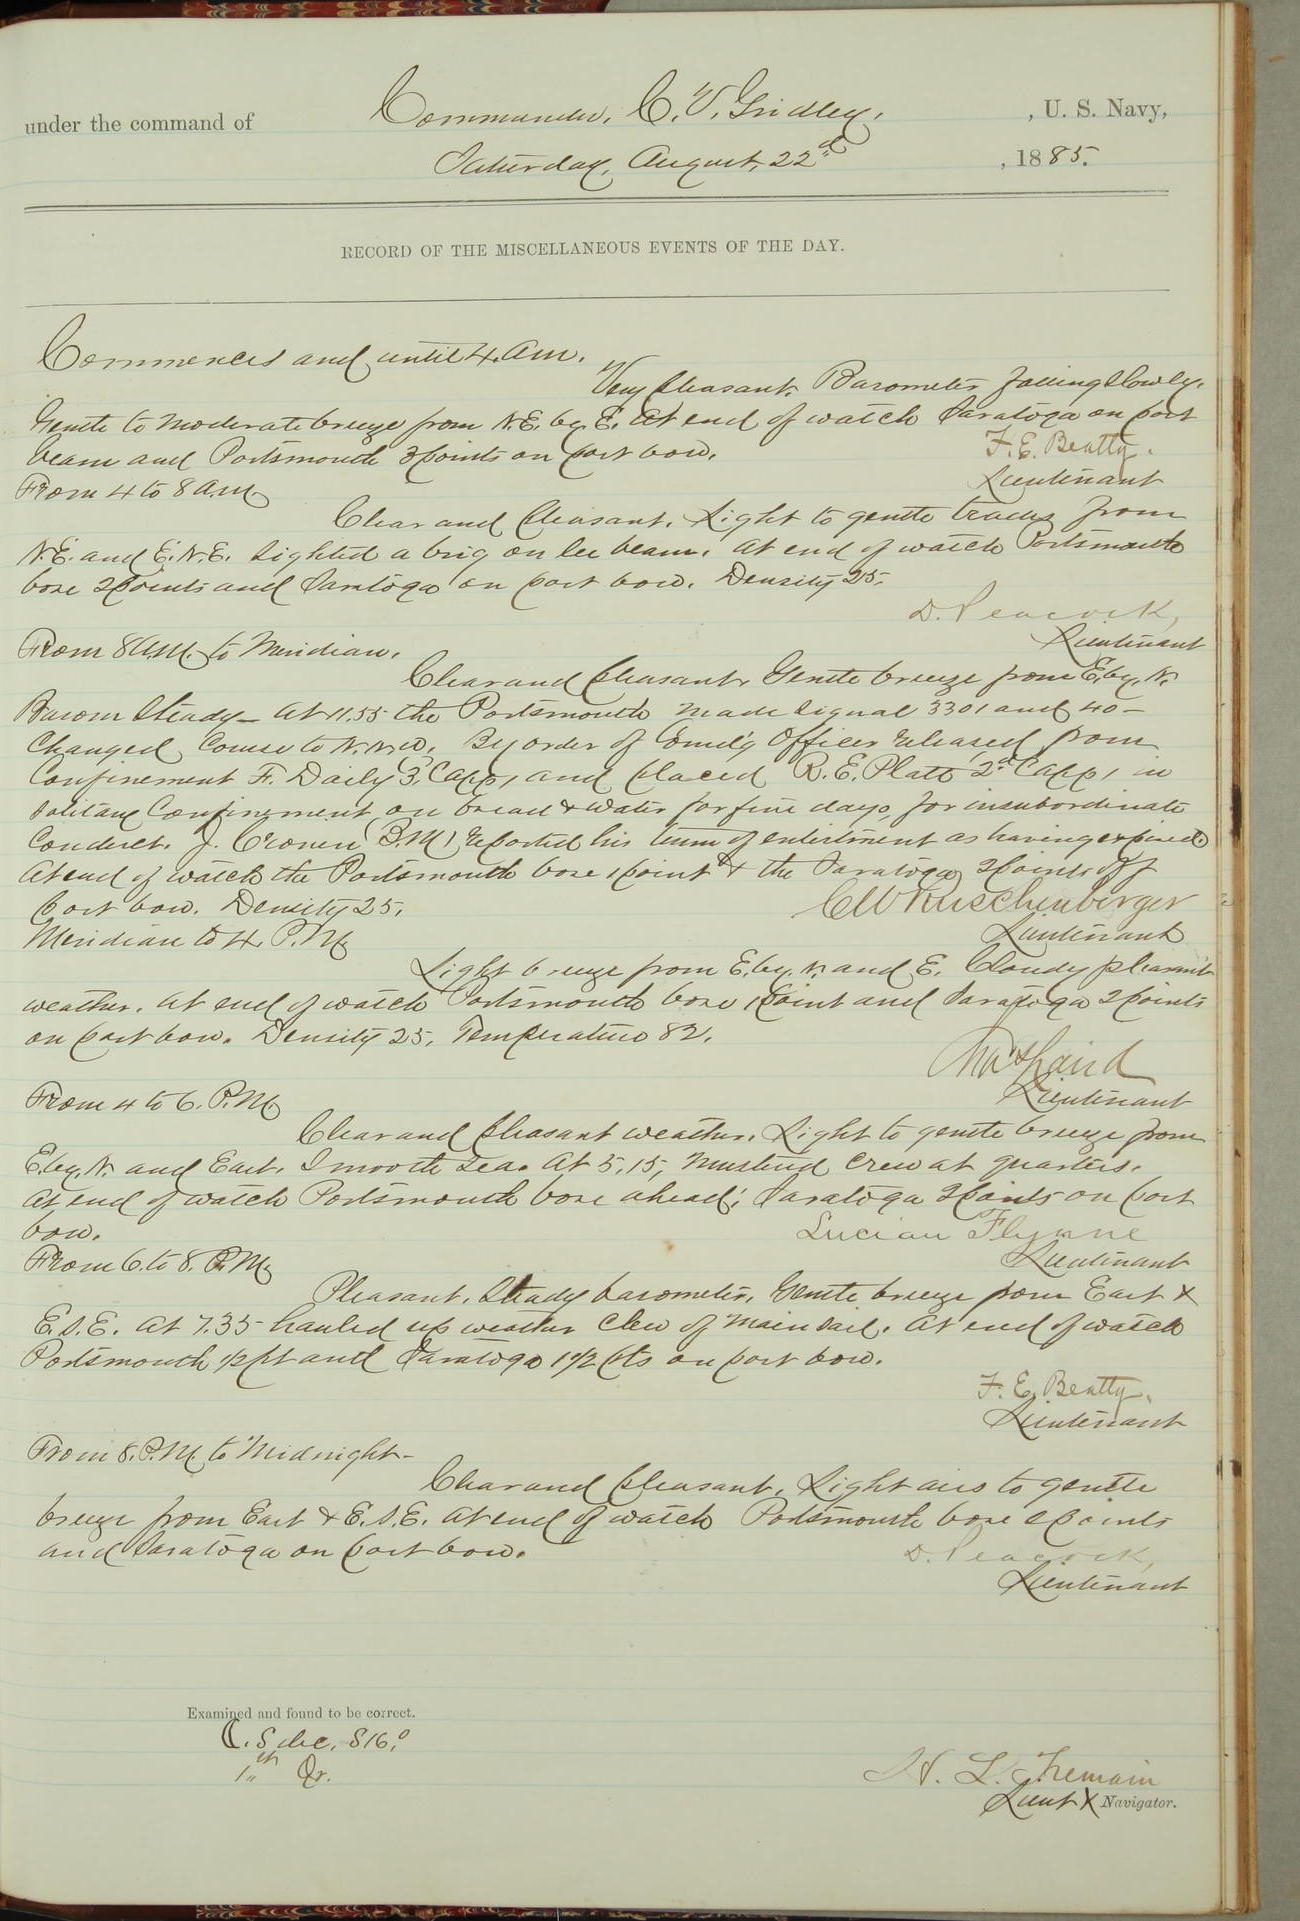 under the command of Commander, C. V. Gridley, , U. S. Navy,
Saturday, August, 22"d , 1885.
RECORD OF THE MISCELLANEOUS EVENTS OF THE DAY.
Commences and until 4. Am.
Very pleasant. Barometer falling slowly.
Gentle to moderate breeze from N.E. by E. At end of watch Saratoga on port
beam and Portsmouth 3 points on port bow.
F. E. Beatty.
Lieutenant
From 4 to 8 A.M.
Clear and pleasant. Light to gentle trades from
N.E. and E.N.E. Sighted a brig on lee beam. At end of watch Portsmouth
bore 2 points and Saratoga on port bow. Density 25.
D. Peacock,
Lieutenant
From 8 A.M. to Meridian.
Clear and pleasant. Gentle breeze from E. by. N.
Barom steady - At 11.55 the Portsmouth made signal 3301 and 40 -
Changed course to N.N.W. By order of Comd'g Officer released from
Confinement F. Daily 3" Capp, and placed R. E. Platt 2d Capp, in
solitary Confinement on bread & water for five days, for insubordinate
Conduct. J. Cronin (B.M.) reported his term of enlistment as having expired.
At end of watch the Portsmouth bore 1 point & the Saratoga 2 points off
port bow. Density 25.
C W Ruschenberger
Lieutenant
Meridian to 4. P.M.
Light breeze from E. by. N. and E. Cloudy pleasant
weather. At end of watch Portsmouth bore 1 point and Saratoga 2 points
on port bow. Density 25. Temperature 82.
Chas Laird
Lieutenant
From 4 to 6. P.M.
Clear and pleasant weather. Light to gentle breeze from
E. by. N. and East. Smooth sea. At 5.15, mustered crew at quarters.
At end of watch Portsmouth bore ahead; Saratoga 2 points on port
bow.
Lucian Flynne
Lieutenant
From 6. to 8. P.M.
Pleasant. Steady barometer. Gentle breeze from East &
E.S.E. At 7.35 hauled up weather clew of mainsail. At end of watch
Portsmouth 1/2 pt and Saratoga 1 1/2 pts on port bow.
F. E. Beatty.
Lieutenant
From 8. P.M. to Midnight -
Clear and pleasant. Light airs to gentle
breeze from East & E.S.E. At end of watch Portsmouth bore 2 points
and Saratoga on port bow.
D. Peacock,
Lieutenant
Examined and found to be correct.
1"th Qr.
H. L. Tremain
Lieut & Navigator.